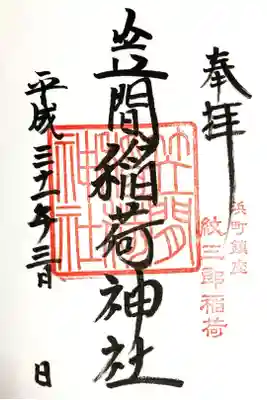 奉拝
浜町鎮座
紋三郎稲荷
笠間稲荷神社
笠間
稲荷
神社
平成三十一年三月 日